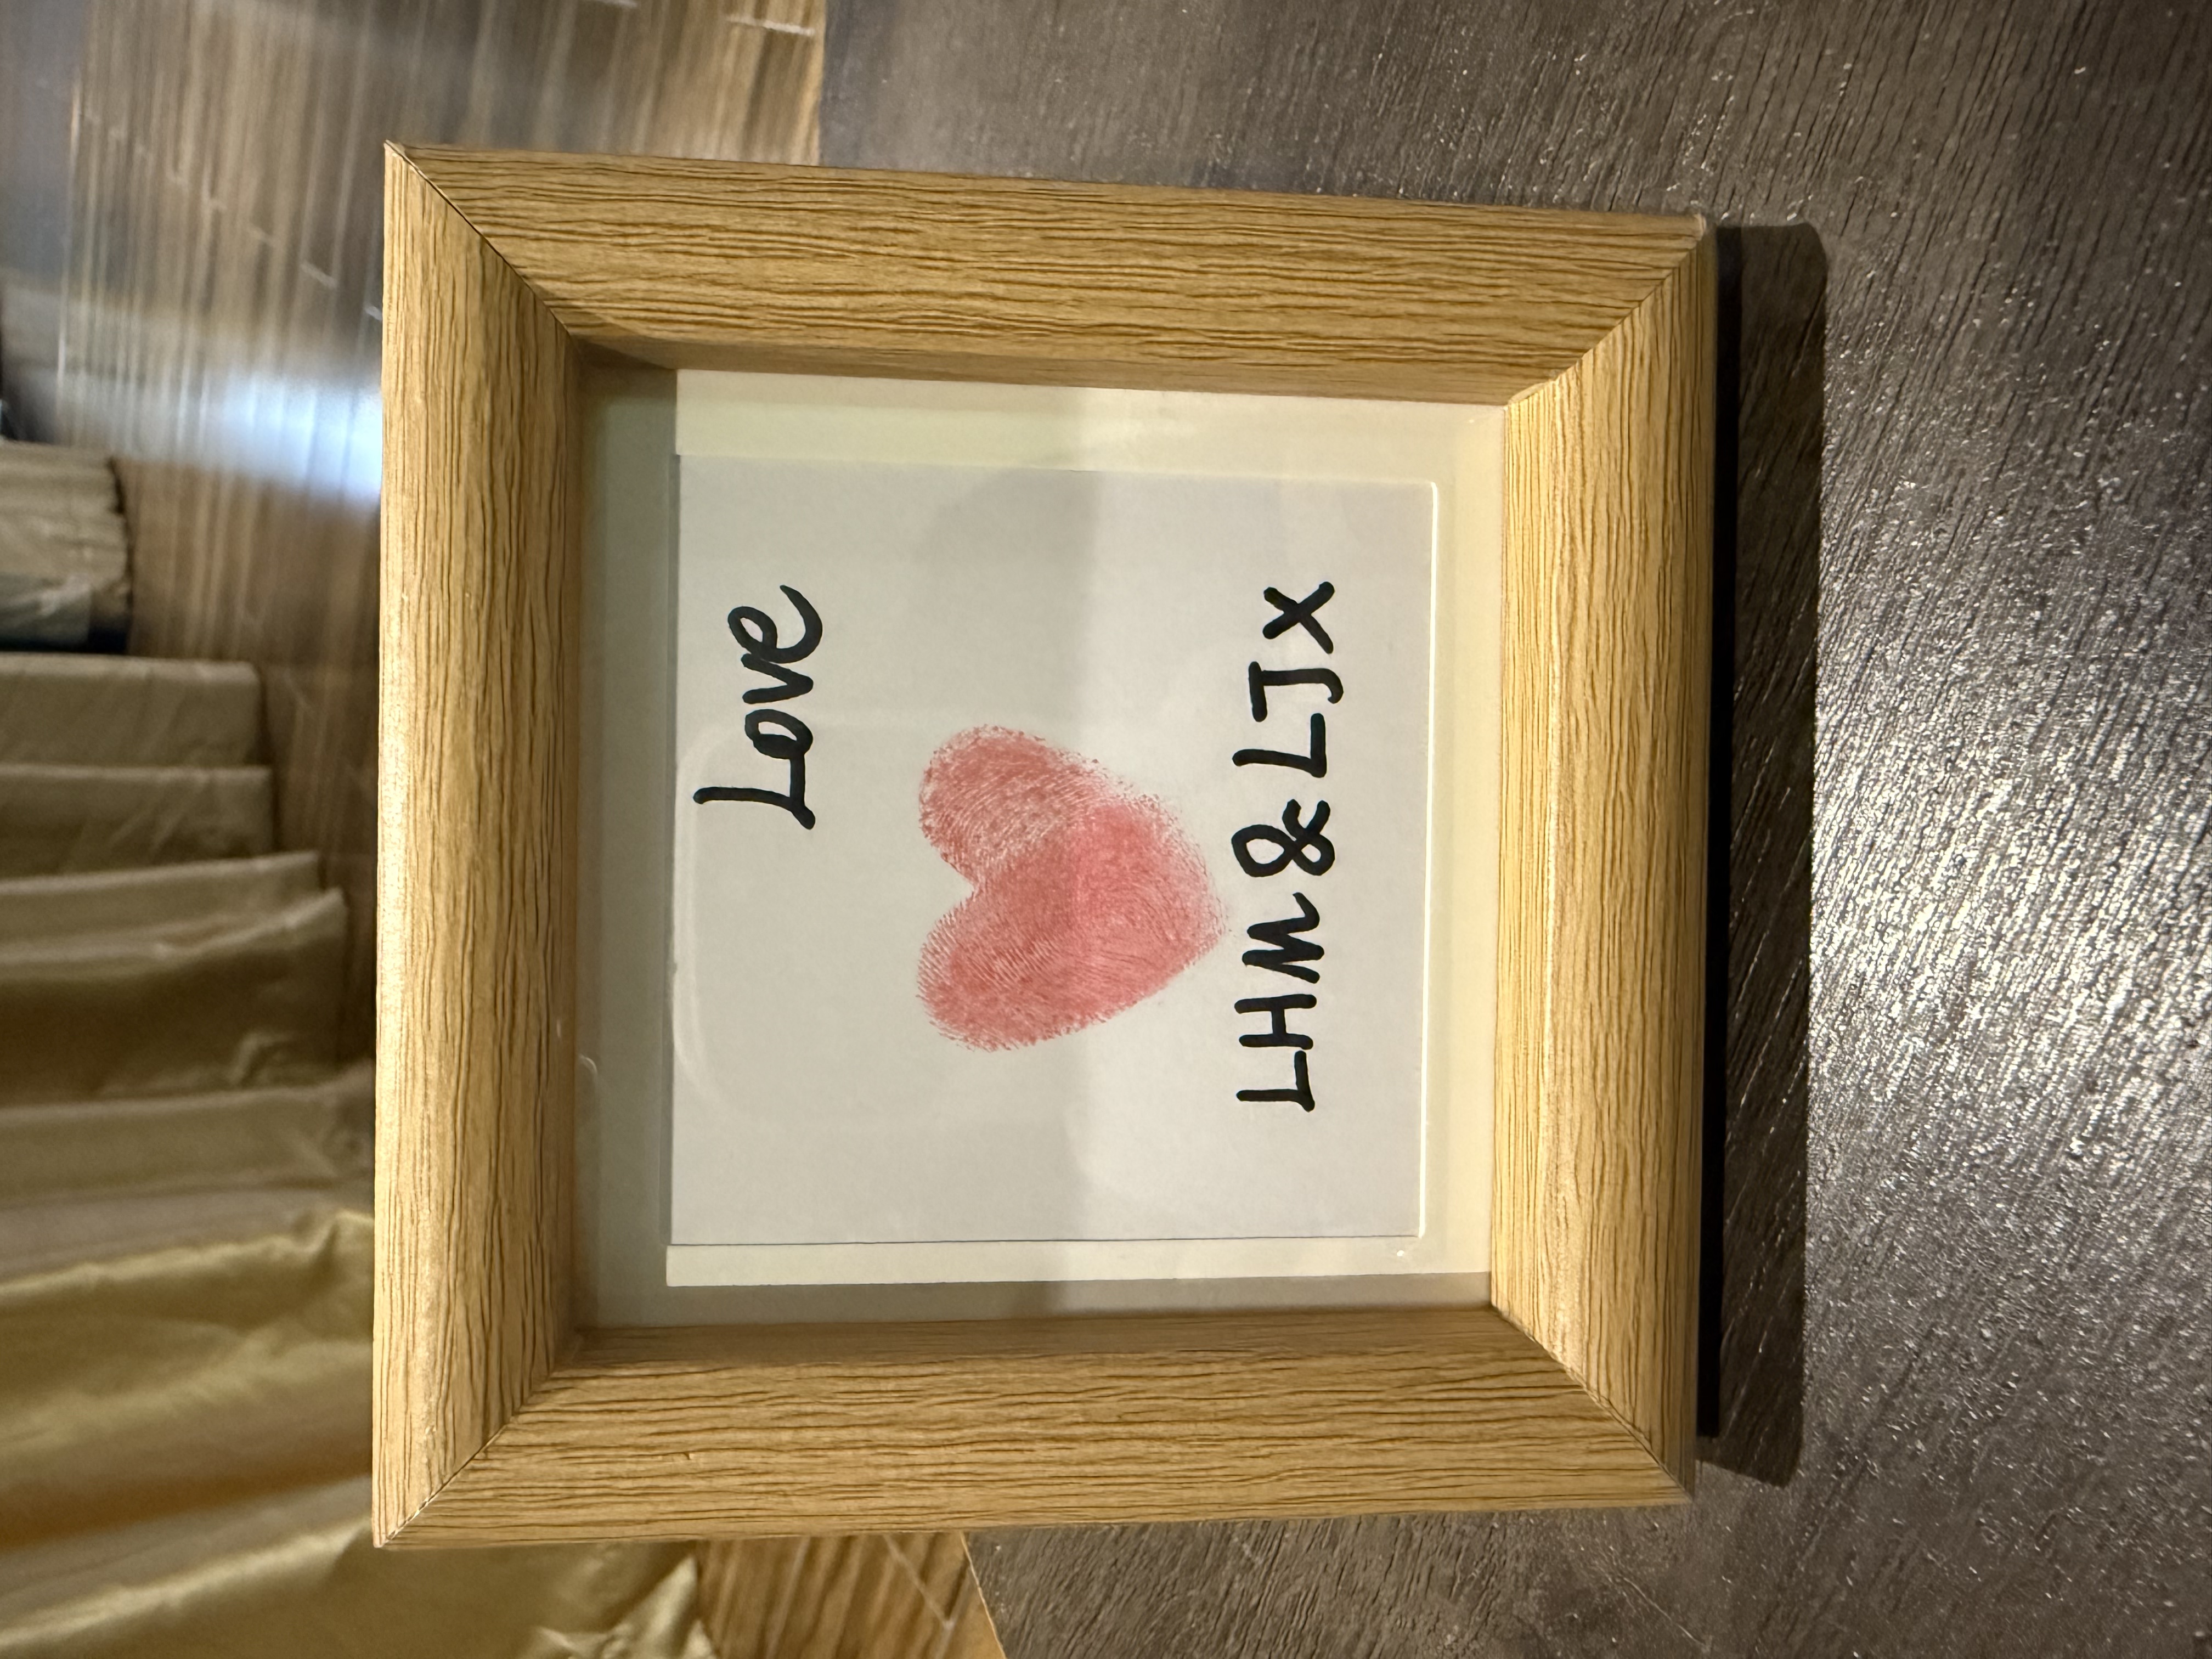 Love
LHM & LJX